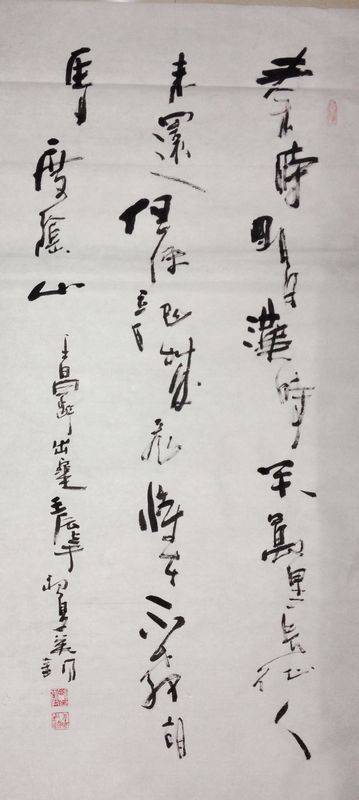 秦時明月漢時關萬里長征人
未還但使龍城飛將在不教胡
馬度陰山
王昌齡出塞壬辰年